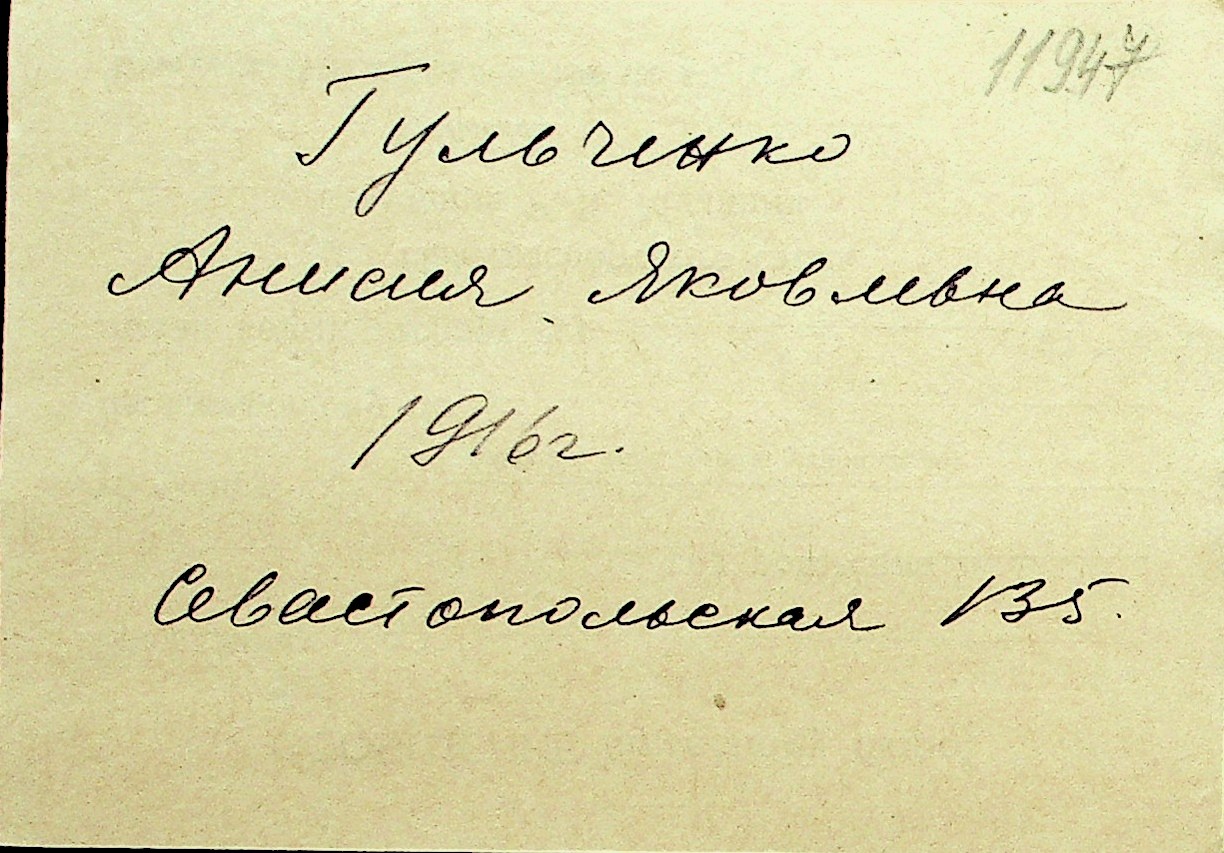 11947
Гульченко
Анисия Яковлевна
1916г.
Севастопольская 135.